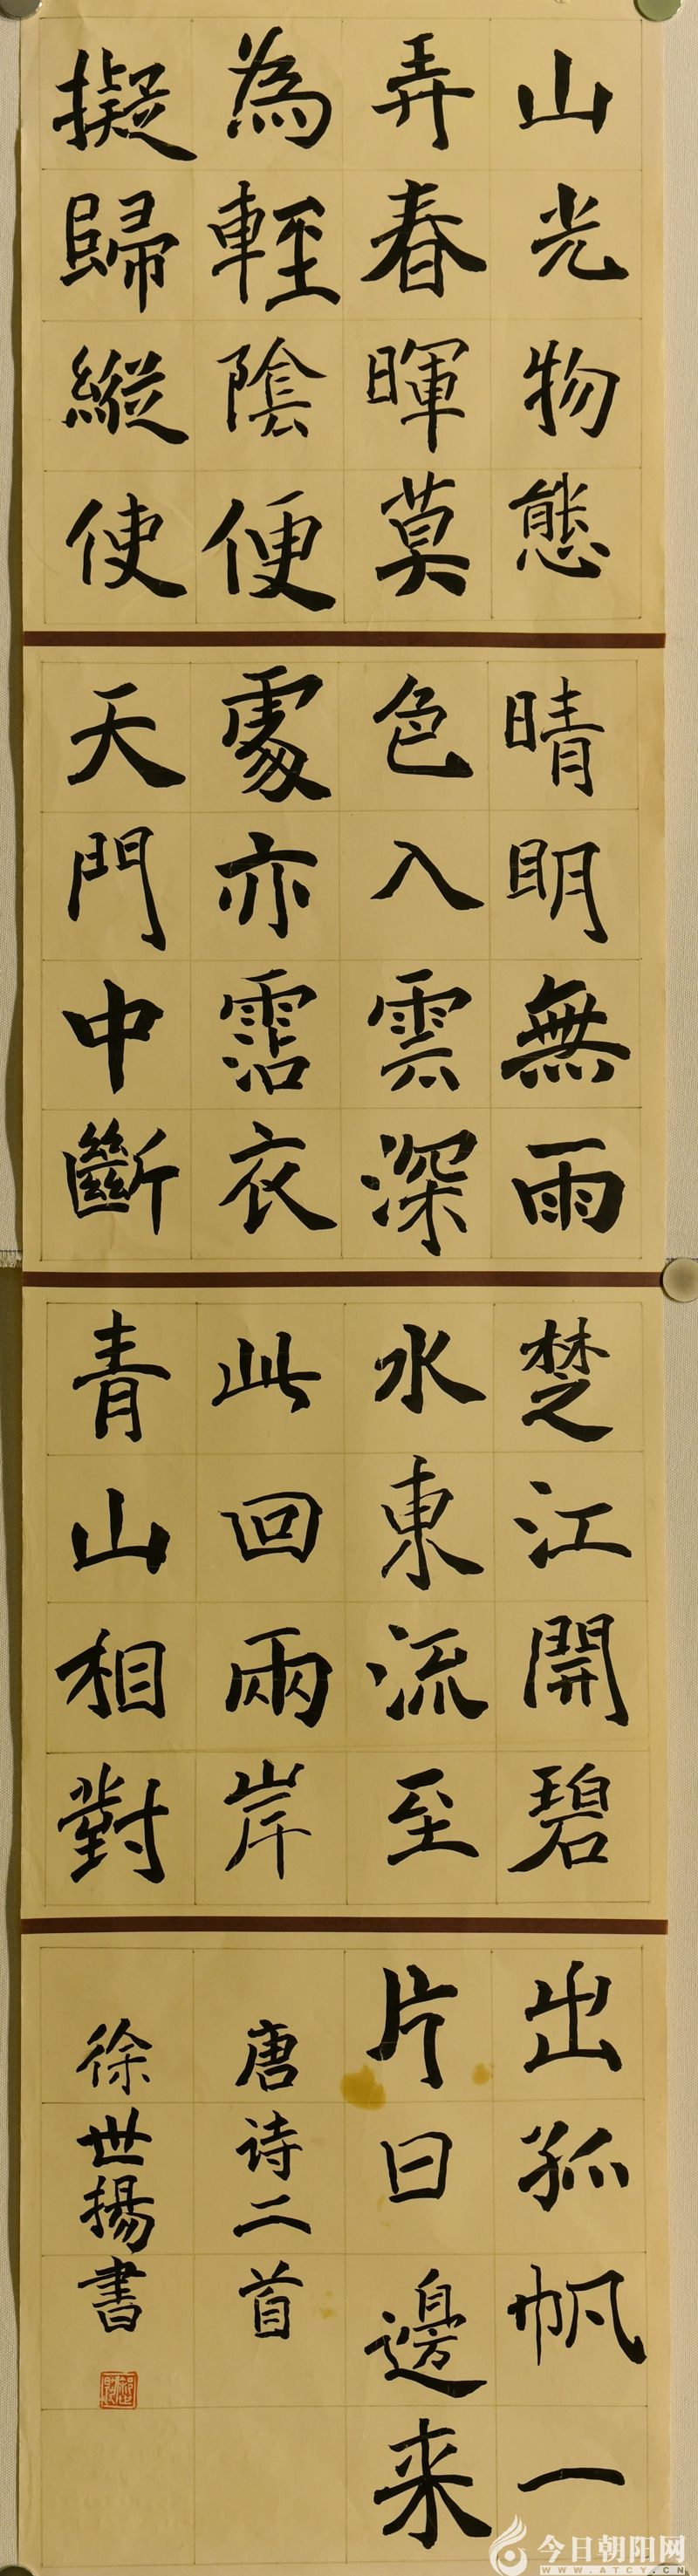 山光物態
弄春暉莫
為輕陰便
擬歸縱使
晴明無雨
色入雲深
處亦霑衣
天門中斷
楚江開碧
水東流至
此回兩岸
青山相對
出孤帆一
片日邊来
唐诗二首
徐世揚書
今日朝阳网
WWW.ATCY.CN